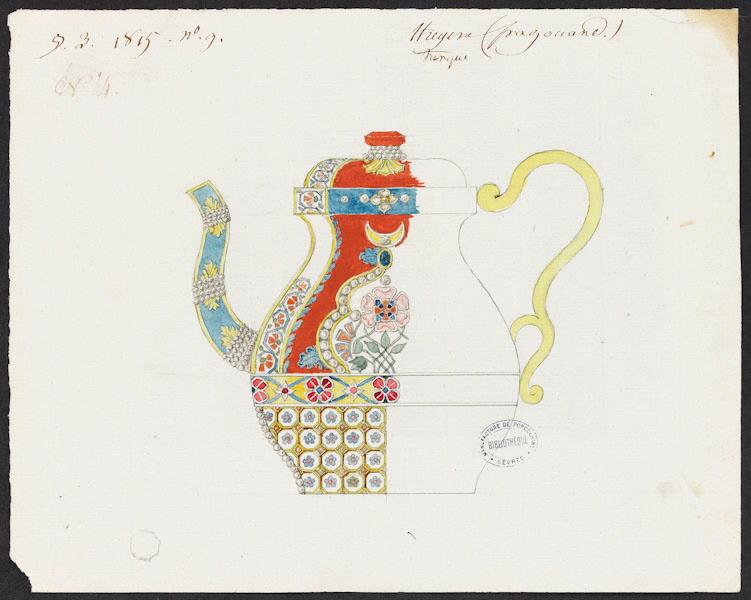 §. 3. 1815. nº. 9.
(fragonard.)
turque
Nº 4.
MANUFACTURE DE PORCELAINE
BIBLIOTHÈQUE
SÈVRES